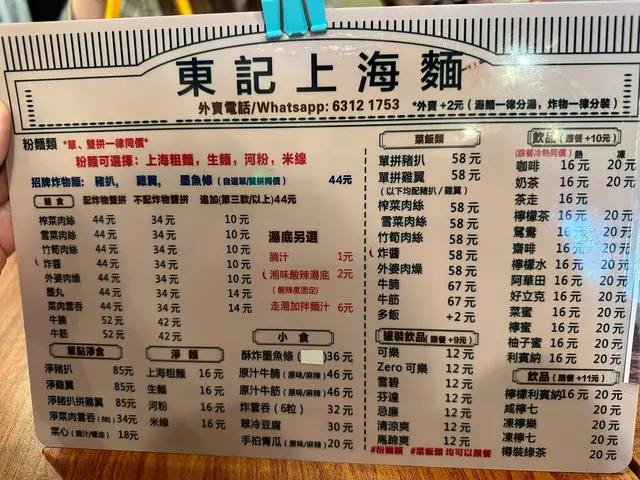 東記上海麵
外賣電話/Whatsapp: 6312 1753 *外賣 +2元 (湯麵一律分湯，炸物一律分裝)
粉麵類 *單、雙拼一律同價*
粉麵可選擇：上海粗麵，生麵，河粉，米線
招牌炸物麵：豬扒，雞翼，墨魚條 (自選單/雙拼同價) 44元
麵食 配炸物雙拼 不配炸物雙拼 追加(第三款/以上)44元
榨菜肉絲 44元 34元 10元
雪菜肉絲 44元 34元 10元
竹筍肉絲 44元 34元 10元
炸醬 44元 34元 10元
外婆肉燥 44元 34元 10元
墨丸 44元 34元 14元
菜肉雲吞 44元 34元 14元
牛腩 52元 42元
牛筋 52元 42元
湯底另選
腩汁 1元
湘味酸辣湯底 2元
(酸辣度固定)
走湯加拌麵汁 6元
單點淨食
淨豬扒 85元
淨雞翼 85元
淨豬扒拼雞翼 85元
淨菜肉雲吞(8粒) 34元
菜心 (腩汁/蠔油) 18元
淨麵
上海粗麵 16元
生麵 16元
河粉 16元
米線 16元
小食
酥炸墨魚條 36元
原汁牛腩 (原味/麻辣) 46元
原汁牛筋 (原味/麻辣) 46元
炸雲吞 (6粒) 32元
翠冷豆腐 30元
手拍青瓜 (原味/麻辣) 20元
菜飯類
單拼豬扒 58元
單拼雞翼 58元
(以下均配豬扒/雞翼)
榨菜肉絲 58元
雪菜肉絲 58元
竹筍肉絲 58元
炸醬 58元
外婆肉燥 58元
牛腩 67元
牛筋 67元
多飯 +2元
罐裝飲品 (跟餐 +9元)
可樂 12元
Zero 可樂 12元
雪碧 12元
芬達 12元
忌廉 12元
清涼爽 12元
馬蹄爽 12元
#粉麵類 #菜飯類 均可以跟餐
飲品 (跟餐 +10元)
(跟餐冷熱同價) 熱 凍
咖啡 16元 20元
奶茶 16元 20元
茶走 16元
檸檬茶 16元 20元
鴛鴦 16元 20元
齋啡 16元 20元
檸檬水 16元 20元
阿華田 16元 20元
好立克 16元 20元
菜蜜 16元 20元
檸蜜 16元 20元
柚子蜜 16元 20元
利賓納 16元 20元
飲品 (跟餐 +11元)
檸檬利賓納 16元 20元
咸檸七 20元
凍檸樂 20元
凍檸七 20元
樽裝綠茶 20元